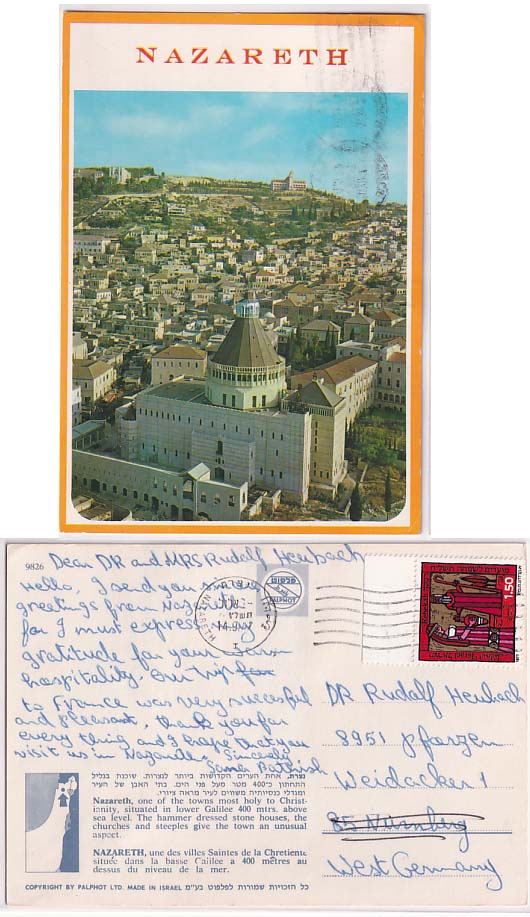 NAZARETH
9826
Dear DR and MRS Rudolf Heubach
Hello, I send you my
greetings from Nazareth,
for I must express my
gratitude for your warm
hospitality. Our trip
to France was very succesful
and pleasant, thank you for
every thing and I hope that you
visit us in Nazareth. Sincerely
PALPHOT
פלפוט
1.50
DR Rudolf Heubach
8951 Pforzen
Weidacker 1
85 Nürnberg
West Germany
נצרת, אחת הערים הקדושות ביותר לנצרות. שוכנת בגליל
התחתון כ־400 מטר מעל פני הים. בתי האבן של העיר
ומגדלי כנסיותיה משווים לעיר מראה ציורי.
Nazareth, one of the towns most holy to Christ-
ianity, situated in lower Galilee 400 mtrs. above
sea level. The hammer dressed stone houses, the
churches and steeples give the town an unusual
aspect.
NAZARETH, une des villes Saintes de la Chretiente
située dans la basse Galilee a 400 mètres au
dessus du niveau de la mer.
COPYRIGHT BY PALPHOT LTD. MADE IN ISRAEL כל הזכויות שמורות לפלפוט בע"מ